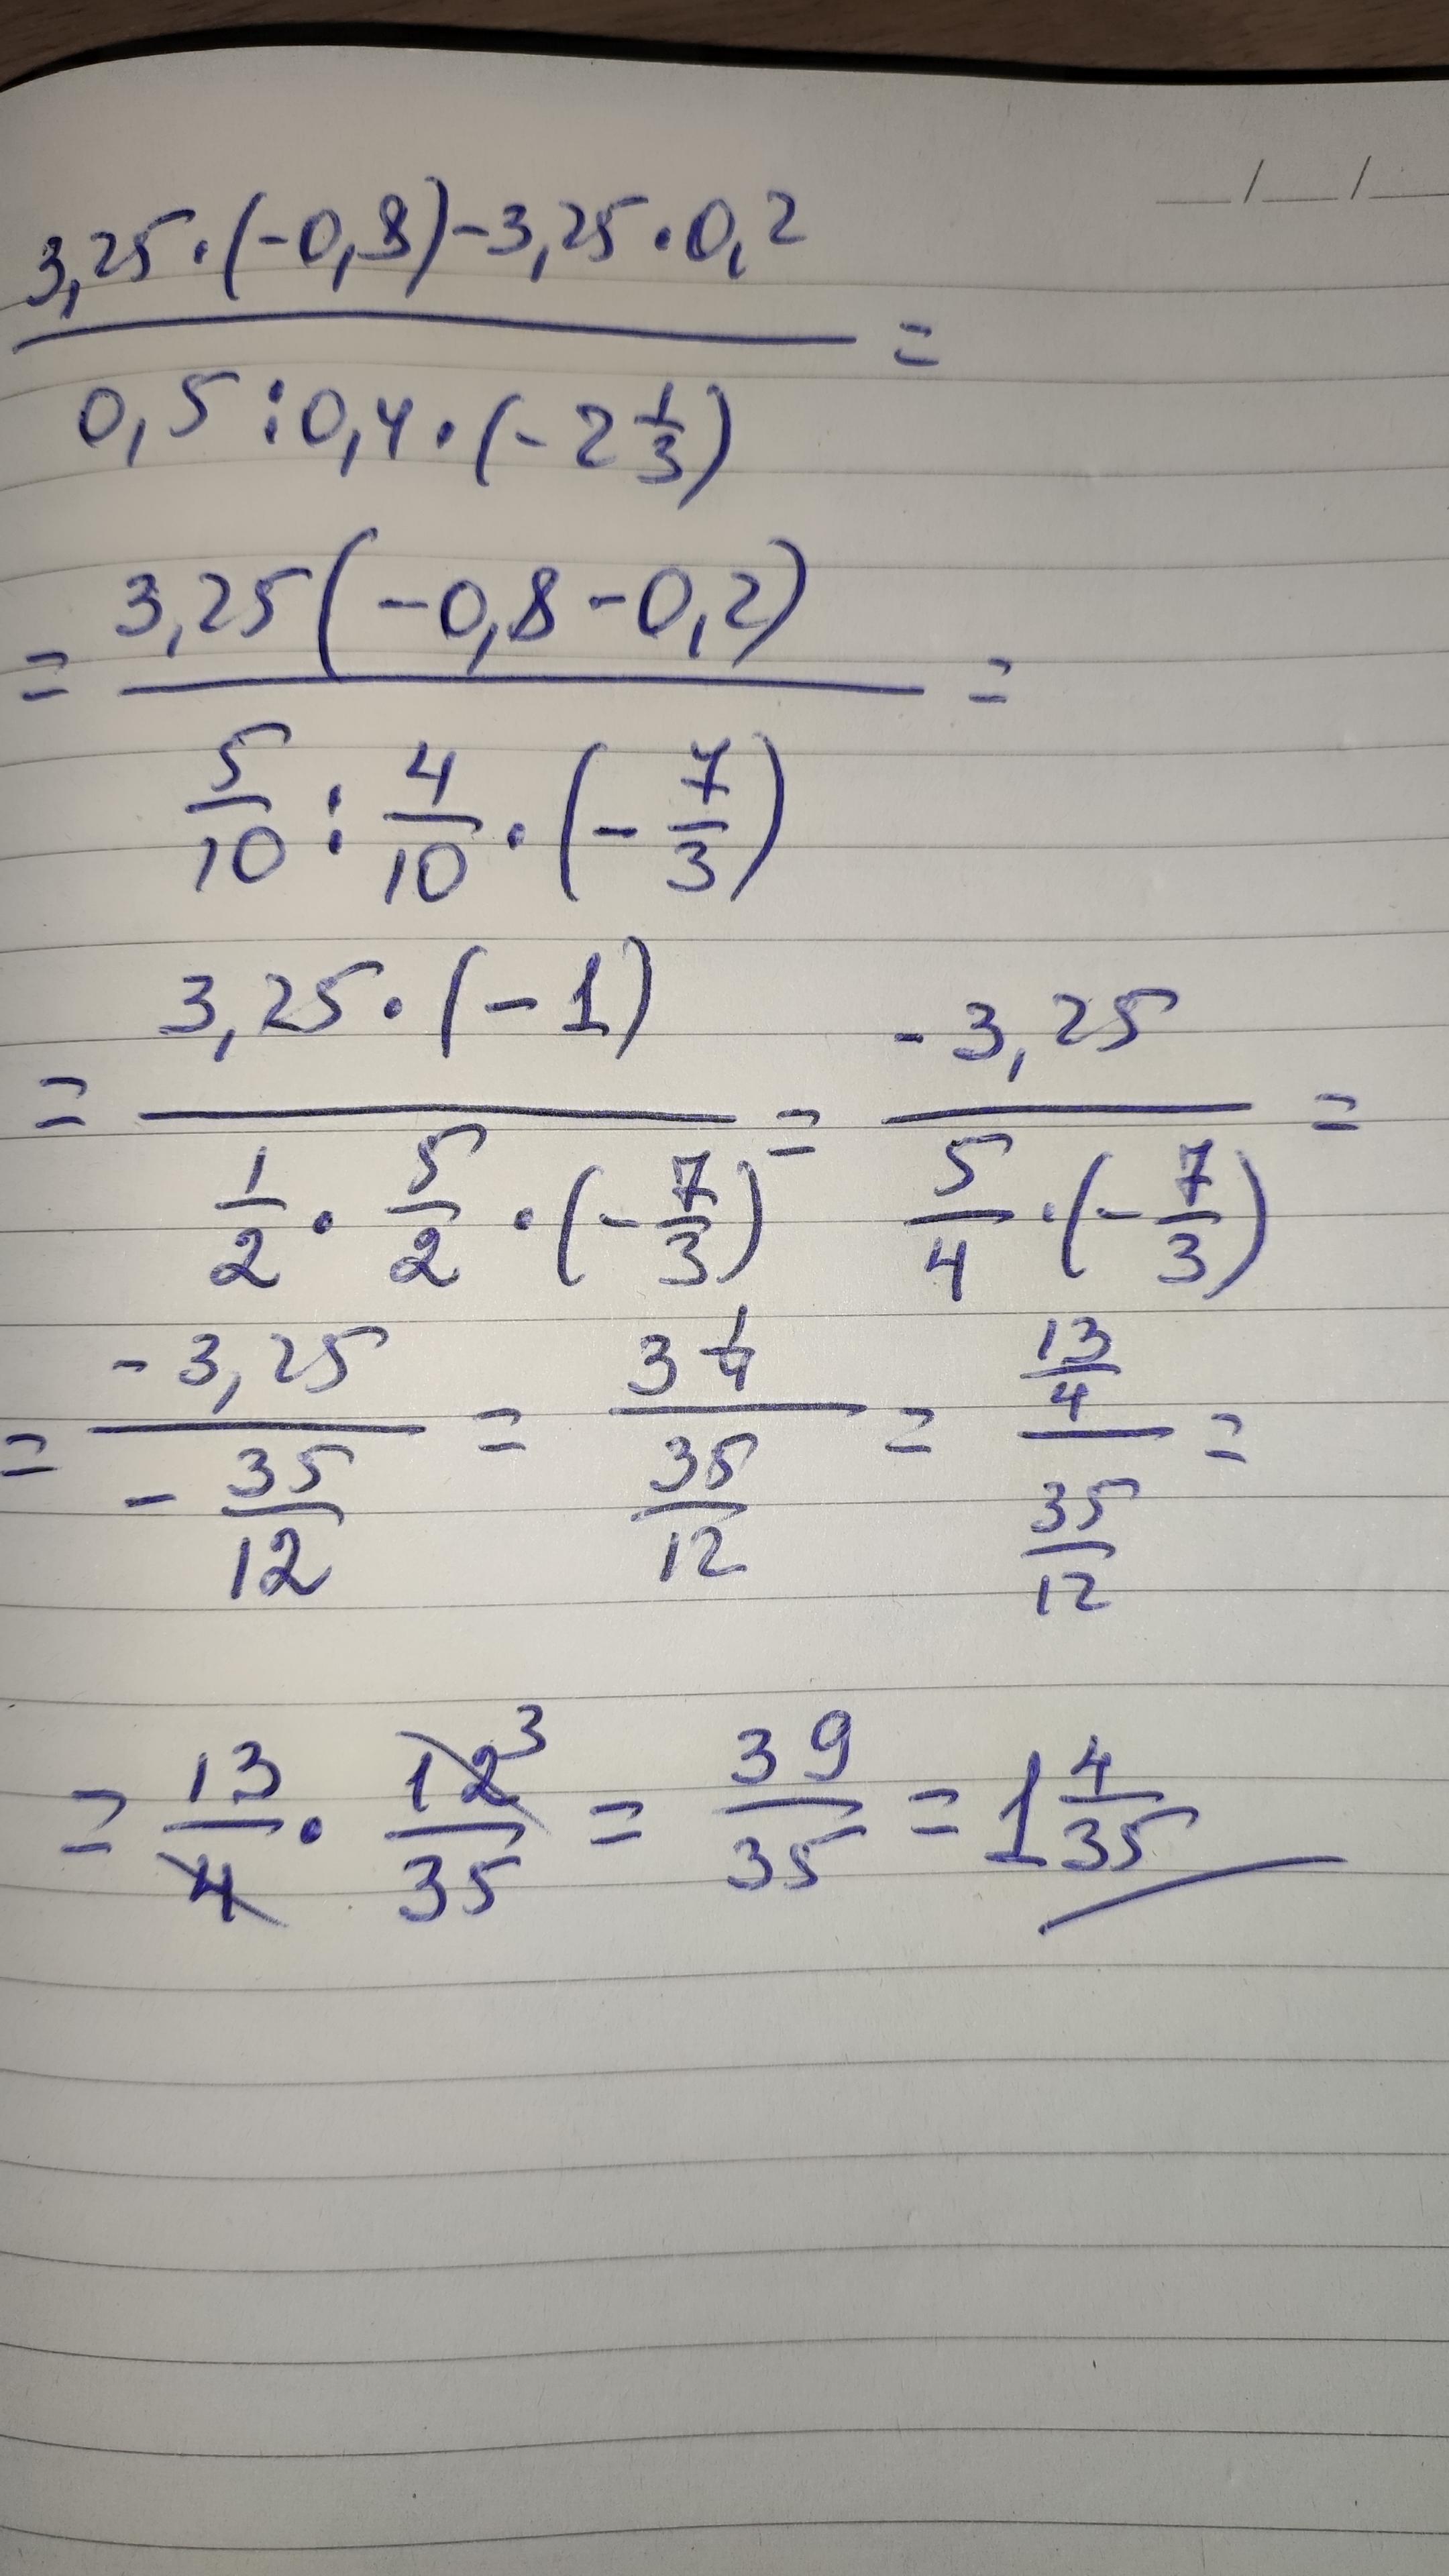 __/__/__
3,25·(-0,8)-3,25·0,2
=
0,5:0,4·(-2 1/3)
3,25(-0,8-0,2)
= =
5/10 : 4/10 · (-7/3)
3,25·(-1) -3,25
= = =
1/2 · 5/2 · (-7/3) 5/4 · (-7/3)
-3,25 3 1/4 13/4
= = = =
-35/12 35/12 35/12
= 13/4 · 12/35 3 = 39/35 = 1 4/35